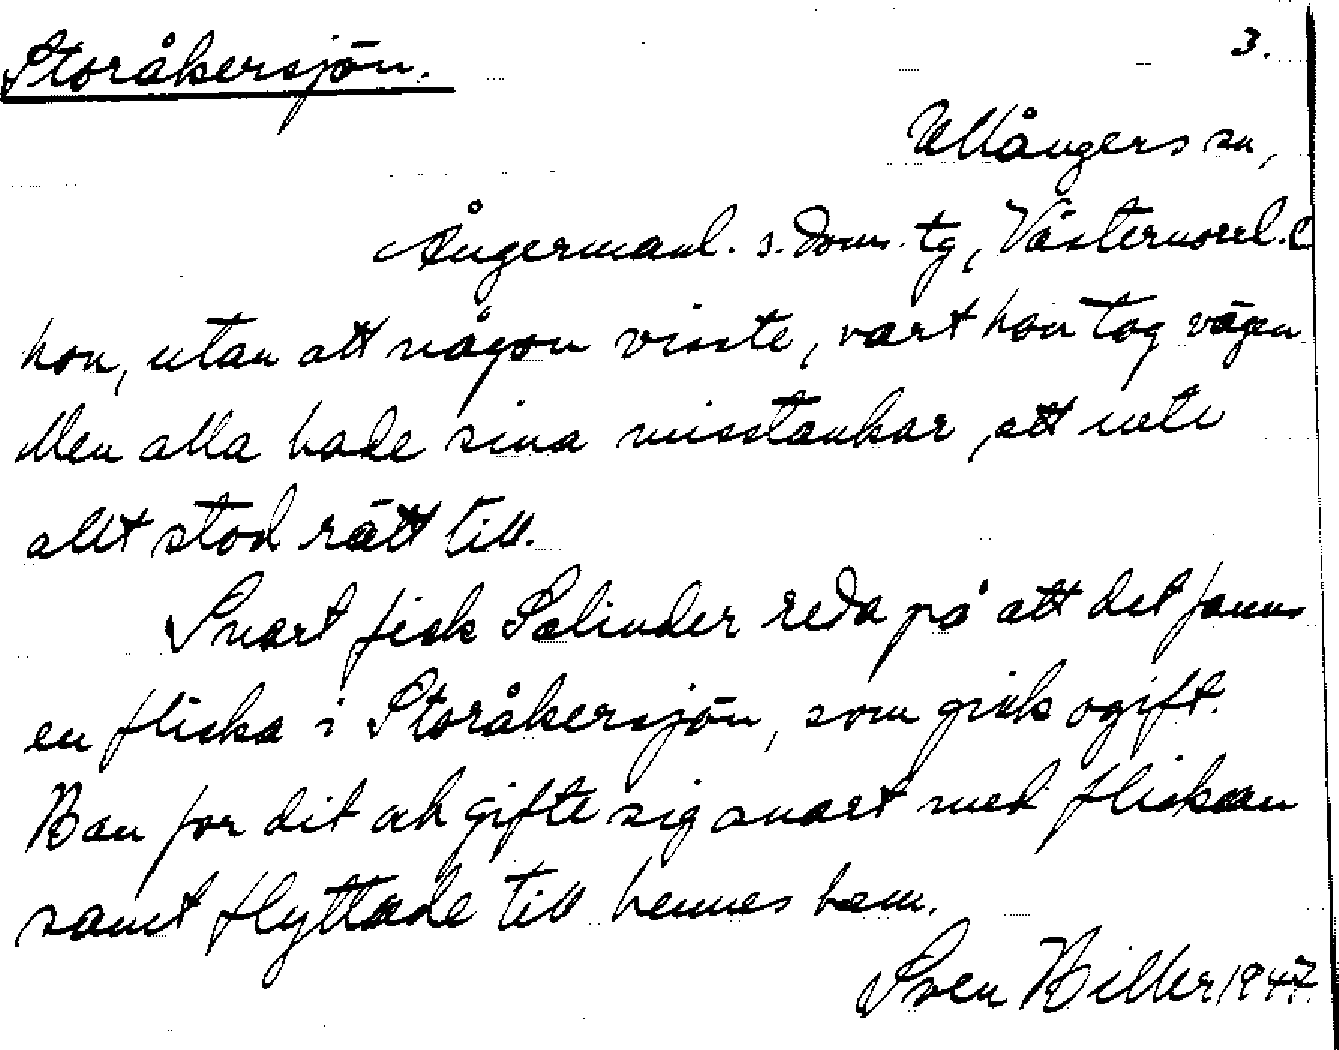 Storåkersjön.
3.
Ullångers sn,
Ångermanl. s. doms. tg, Västernorrl. l
hon, utan att någon visste, vart hon tog vägen
Men alla hade sina misstankar, att inte
allt stod rätt till.
Snart fick Selinder reda på att det fanns
en flicka i Storåkersjön, som gick ogift.
Han for dit och gifte sig snart med flickan
samt flyttade till hennes hem.
Sven Hiller 1947